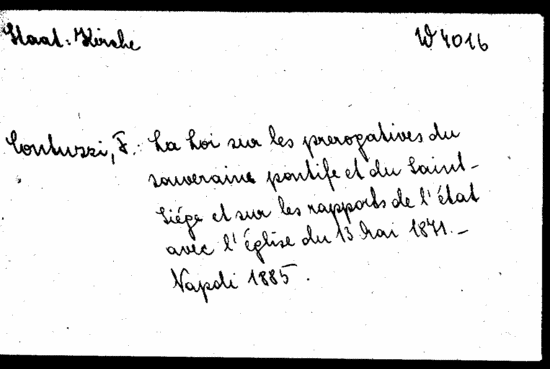 Staat: Kirche
W 4016
Contuzzi, F.: La Loi sur les prerogatives du
souverains pontife et du Saint-
Siége et sur les rapports de l'état
avec l'église du 13 Mai 1871.-
Napoli 1885.